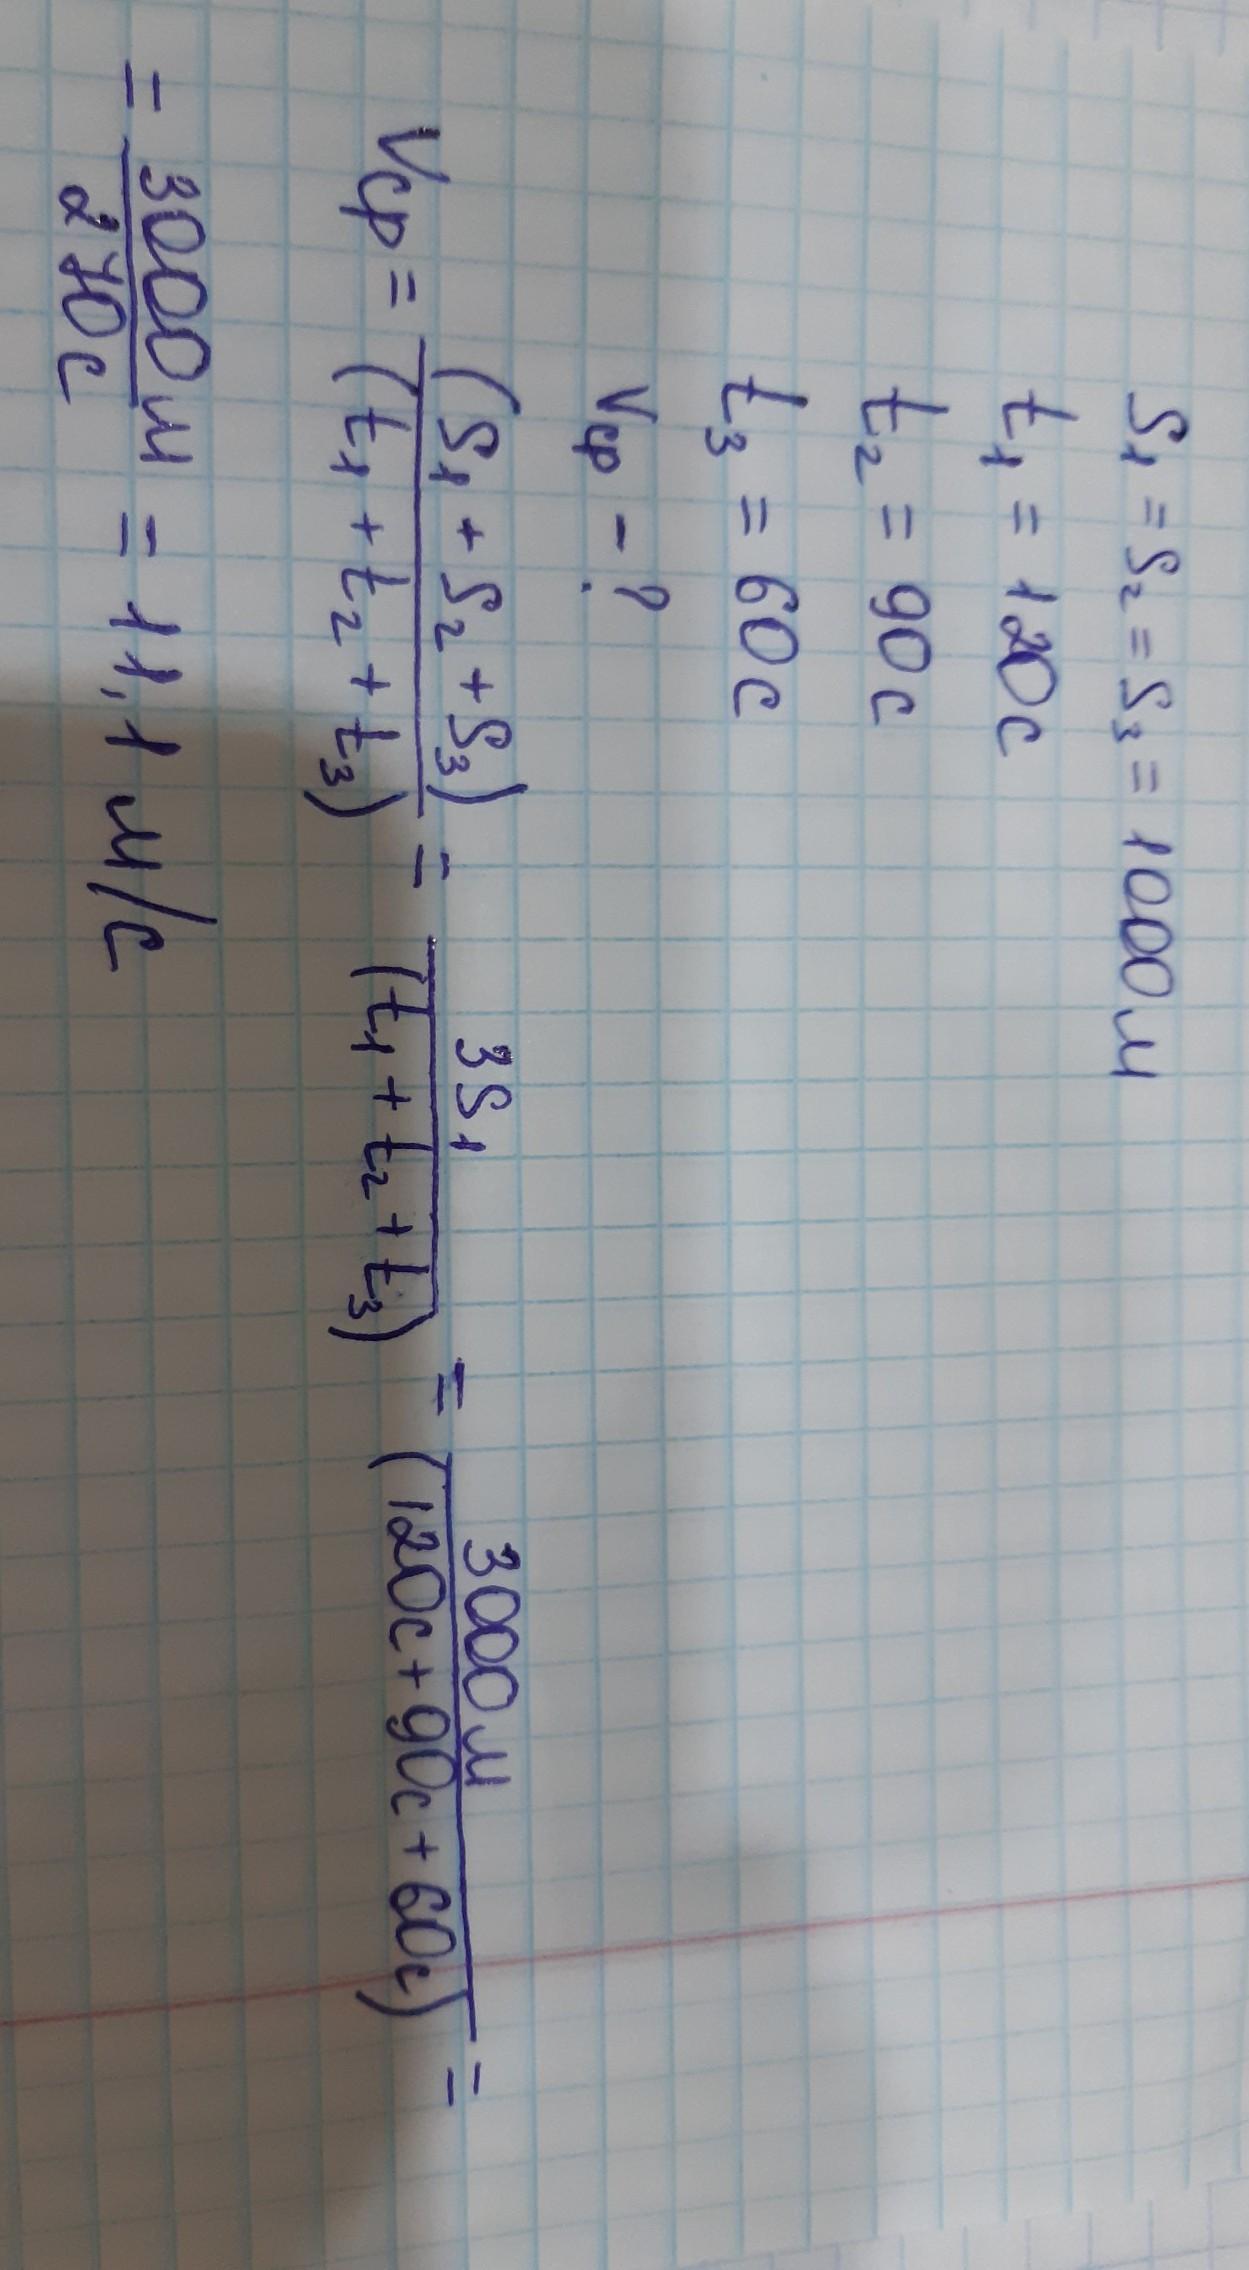 S₁ = S₂ = S₃ = 1000 м
t₁ = 120 с
t₂ = 90 с
t₃ = 60 с
Vср - ?
Vср = (S₁ + S₂ + S₃) / (t₁ + t₂ + t₃) = 3S₁ / (t₁ + t₂ + t₃) = 3000 м / (120с + 90с + 60с) =
= 3000 м / 270 с = 11,1 м/с